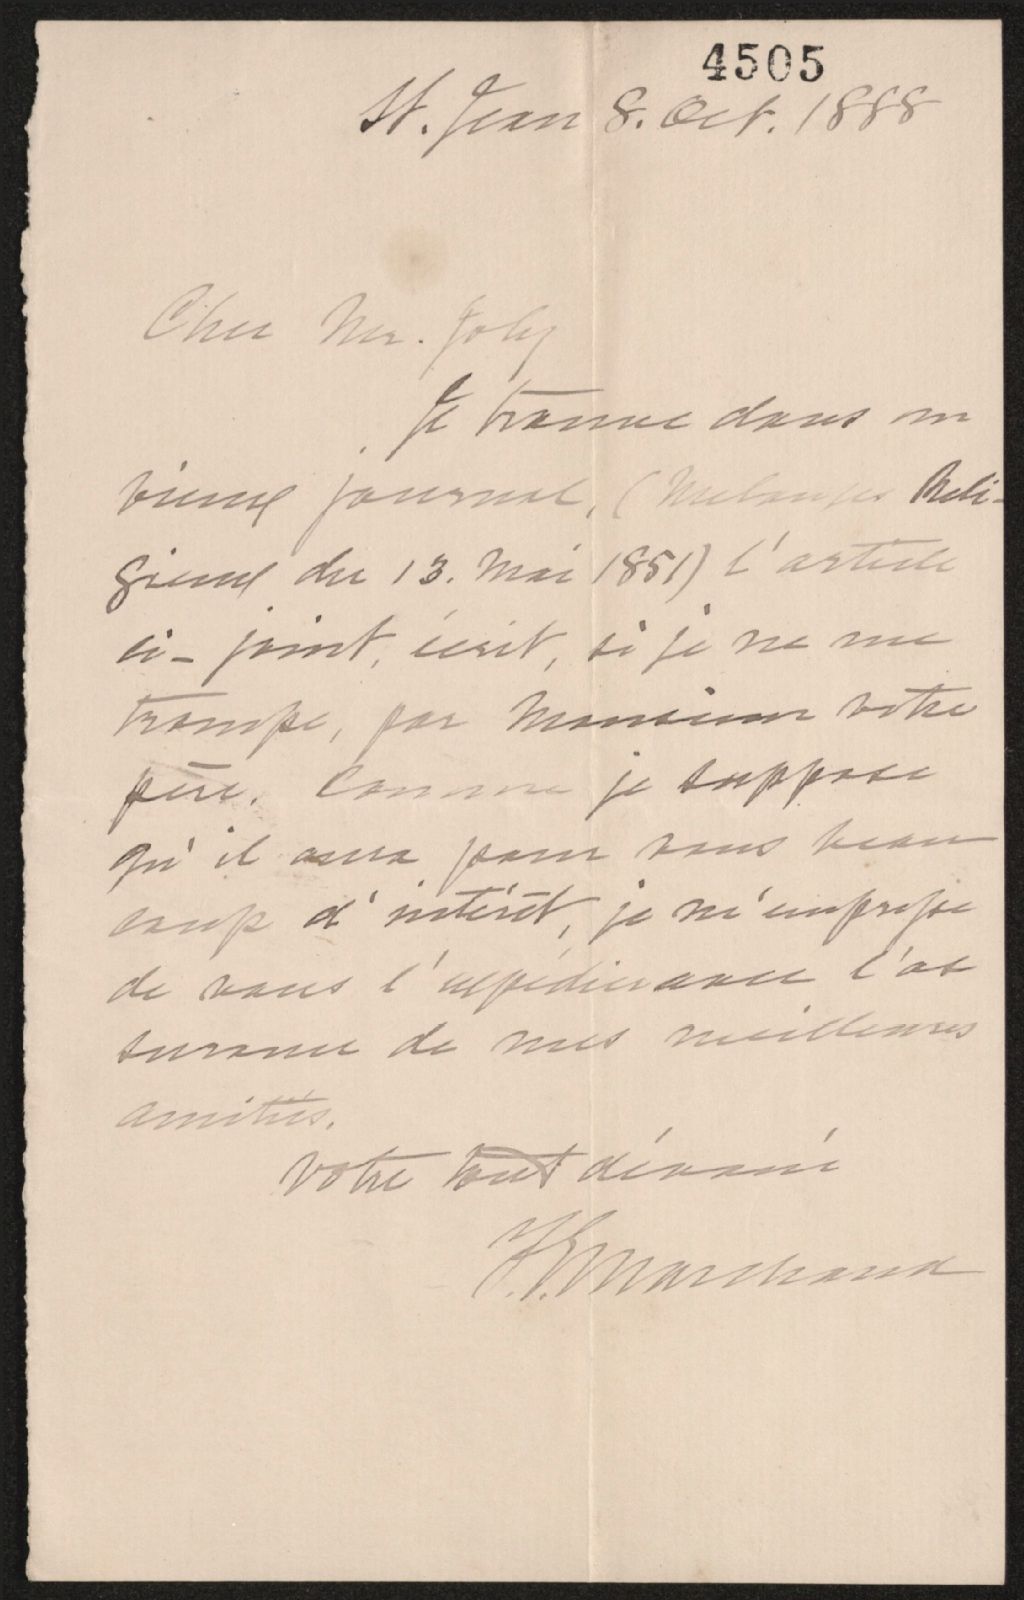 4505
St. Jean 8. Oct. 1888
Cher Mr. Joly
Je trouve dans un
vieux journal, (Melanges Reli-
gieux du 13. Mai 1851) l'article
ci-joint, écrit, si je ne me
trompe, par Monsieur votre
père. Comme je suppose
qu'il aura pour vous beau
coup d'intérêt, je m'empresse
de vous l'expédier avec l'as
surance de mes meilleures
amitiés.
Votre tout dévoué
F. G. Marchand